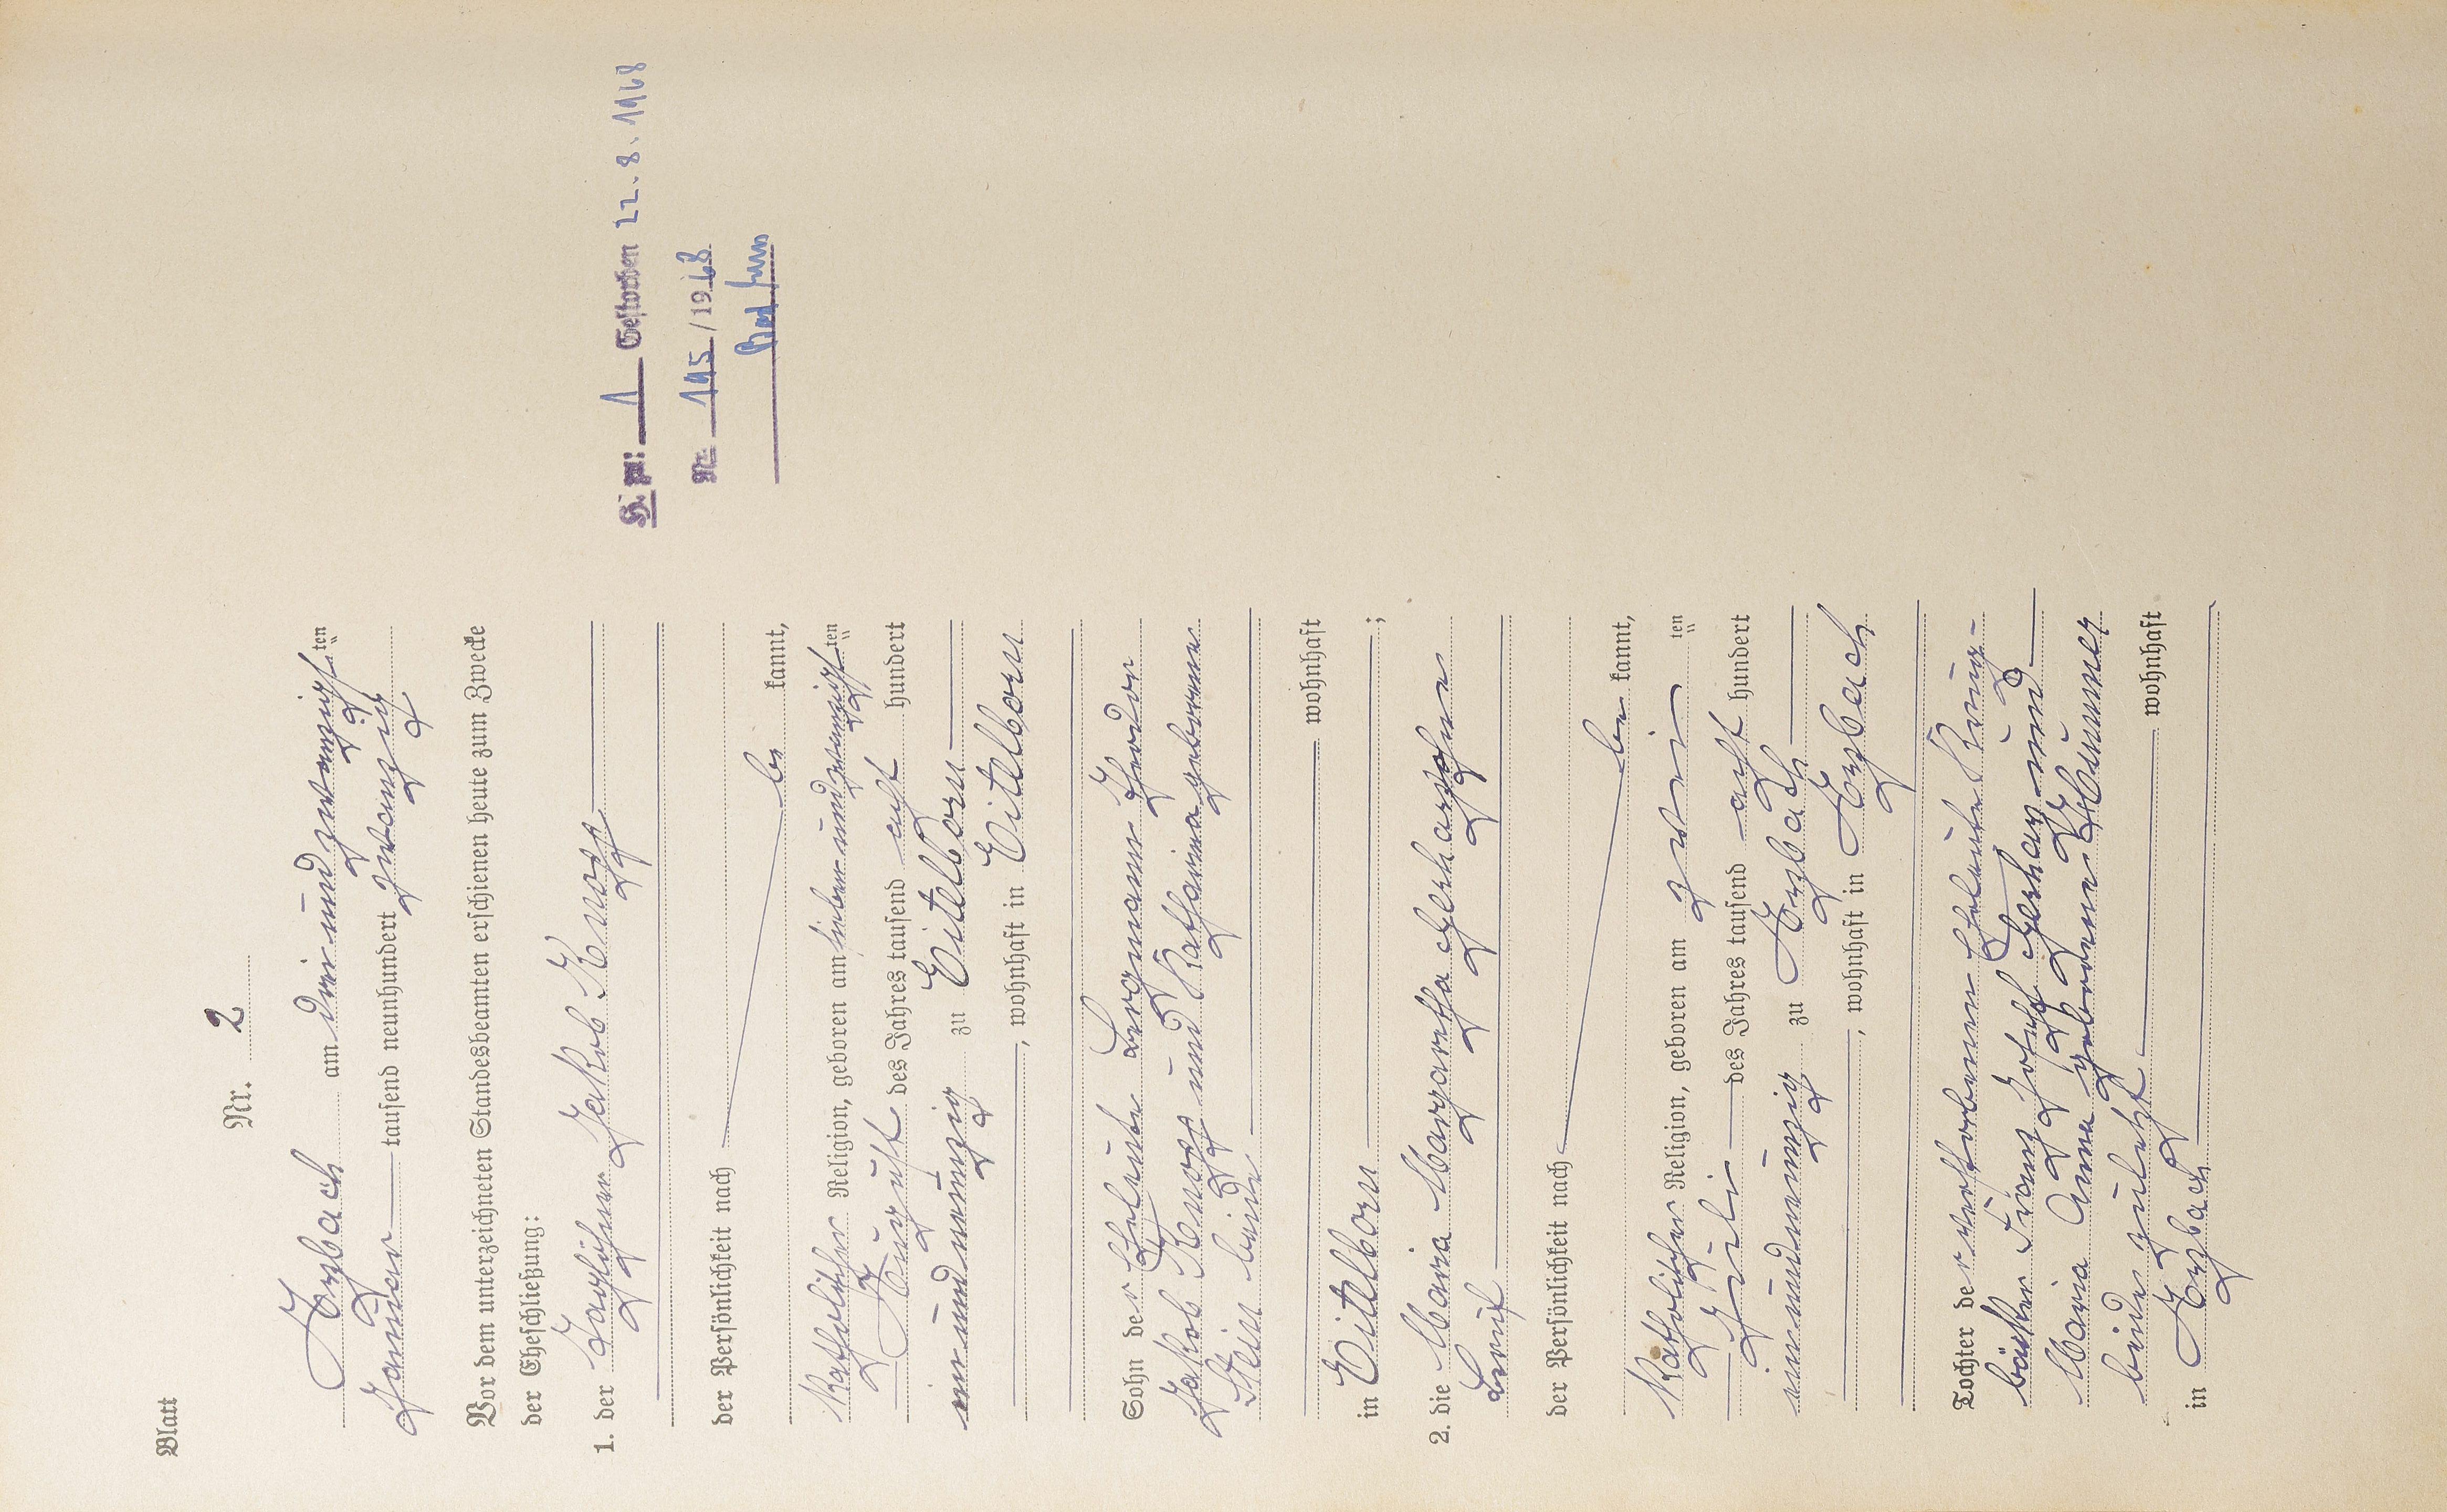 Blatt
Nr. 2
Arzbach am drei und zwanzigsten
Januar tausend neunhundert zwanzig
Vor dem unterzeichneten Standesbeamten erschienen heute zum Zwecke
der Eheschließung:
1. der Taglöhner Jakob Knopp
der Persönlichkeit nach
be kannt,
katholischer Religion, geboren am sieben und zwanzigsten
August des Jahres tausend acht hundert
ein und neunzig zu Eitelborn
, wohnhaft in Eitelborn
Sohn der Eheleute Bergmann
Jakob Knopp und Katharina geborene
Stein beide
wohnhaft
in Eitelborn ;
2. die Maria Margaretha Gerharz ohne
Beruf
der Persönlichkeit nach
be kannt,
katholischer Religion, geboren am zwei ten
Juli des Jahres tausend acht hundert
ein und neunzig zu Arzbach
, wohnhaft in Arzbach
Tochter der verstorbenen Eheleute
Franz Josef Gerharz und
Maria Anna geborene
beide zuletzt wohnhaft
in Arzbach
H. zu: 1 Gestorben 22.8.1968
Nr. 195/1968